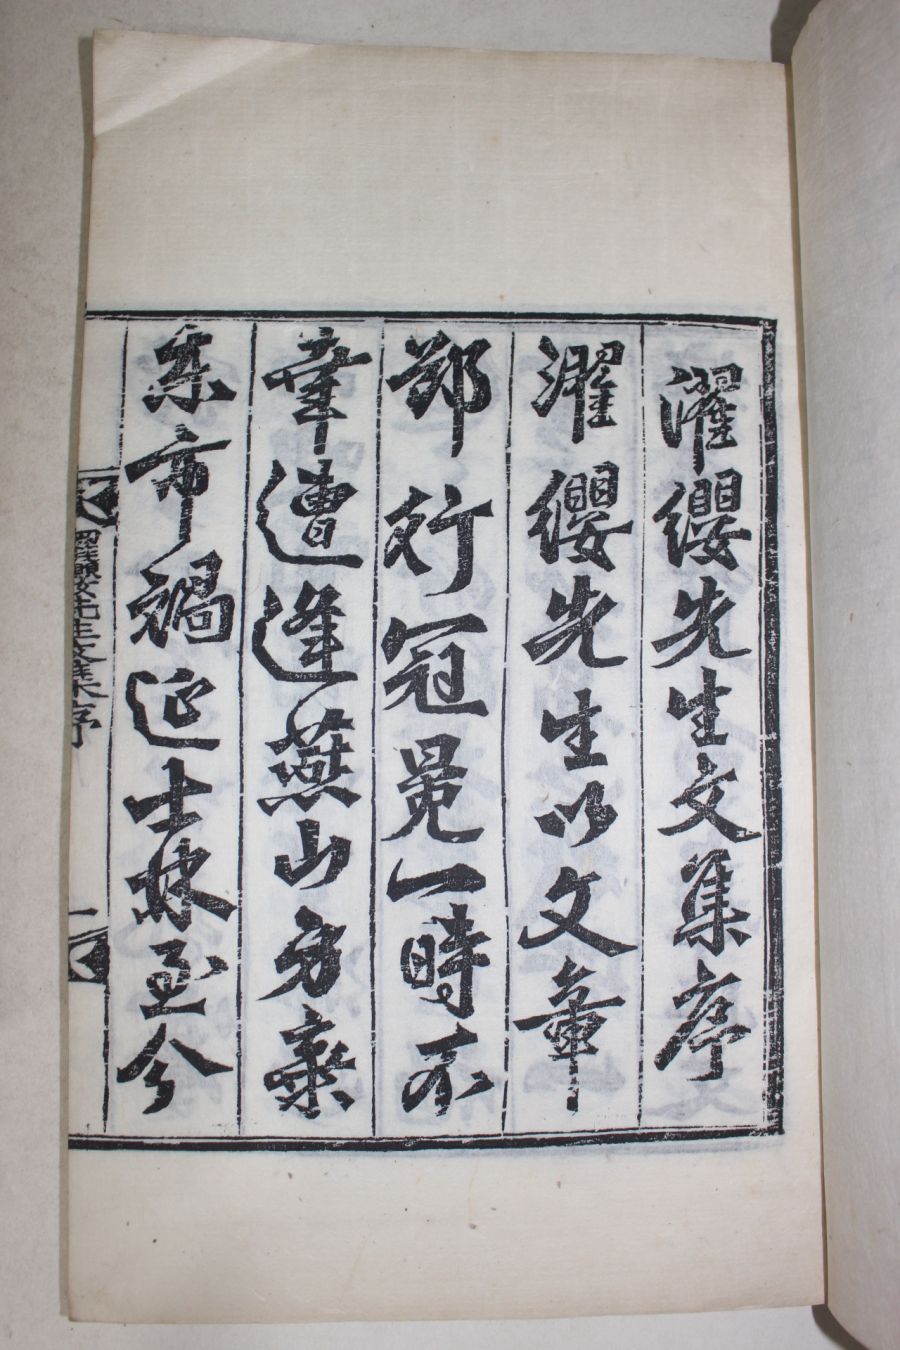 濯纓先生文集序
濯纓先生以文章
節行冠冕一時不
幸遭逢燕山身棄
東市禍延士林至今
濯纓先生文集序
一